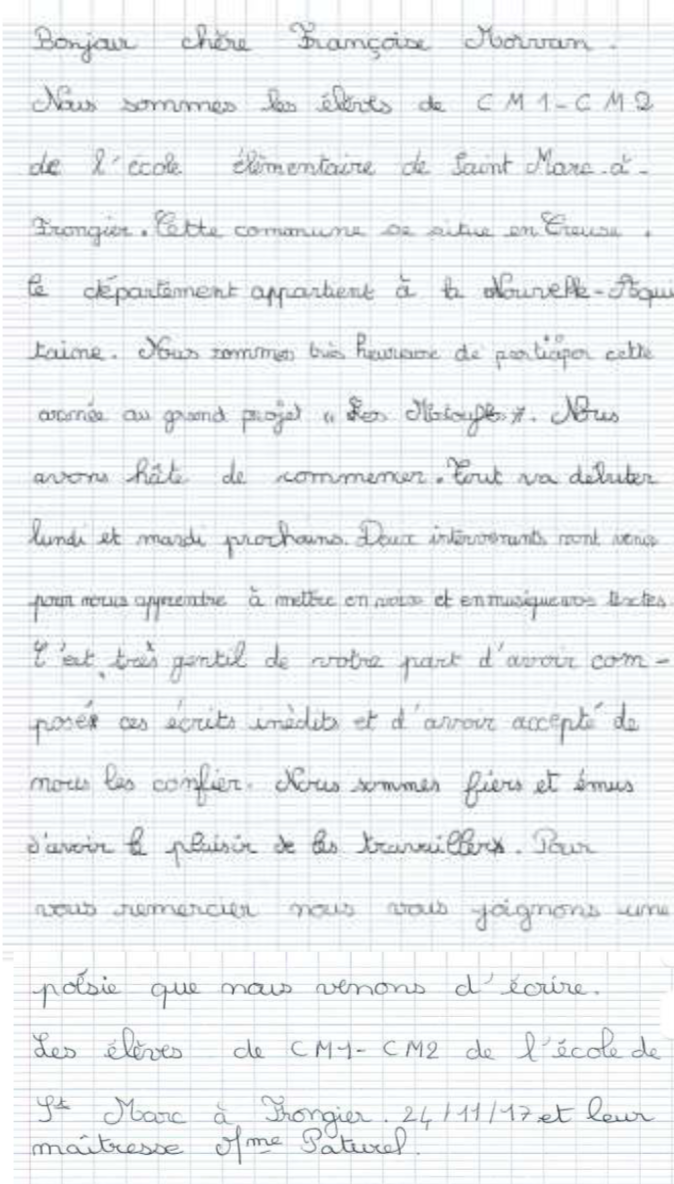 Bonjour chère Françoise Morvan.
Nous sommes les élèves de CM1-CM2
de l'école élémentaire de Saint Marc-à-
Frongier. Cette commune se situe en Creuse.
Ce département appartient à la Nouvelle-Aqui
taine. Nous sommes très heureux de participer cette
année au grand projet « Les ». Nous
avons hâte de commencer. Tout va débuter
lundi et mardi prochains. Deux intervenants vont venir
pour nous apprendre à mettre en voix et en musique vos textes.
C'est très gentil de votre part d'avoir com-
posés ces écrits inédits et d'avoir accepté de
nous les confier. Nous sommes fiers et émus
d'avoir le plaisir de les travailler. Pour
vous remercier nous vous joignons une
poésie que nous venons d'écrire.
Les élèves de CM1-CM2 de l'école de
St Marc à Frongier. 24/11/17 et leur
maîtresse Mme Paturel.